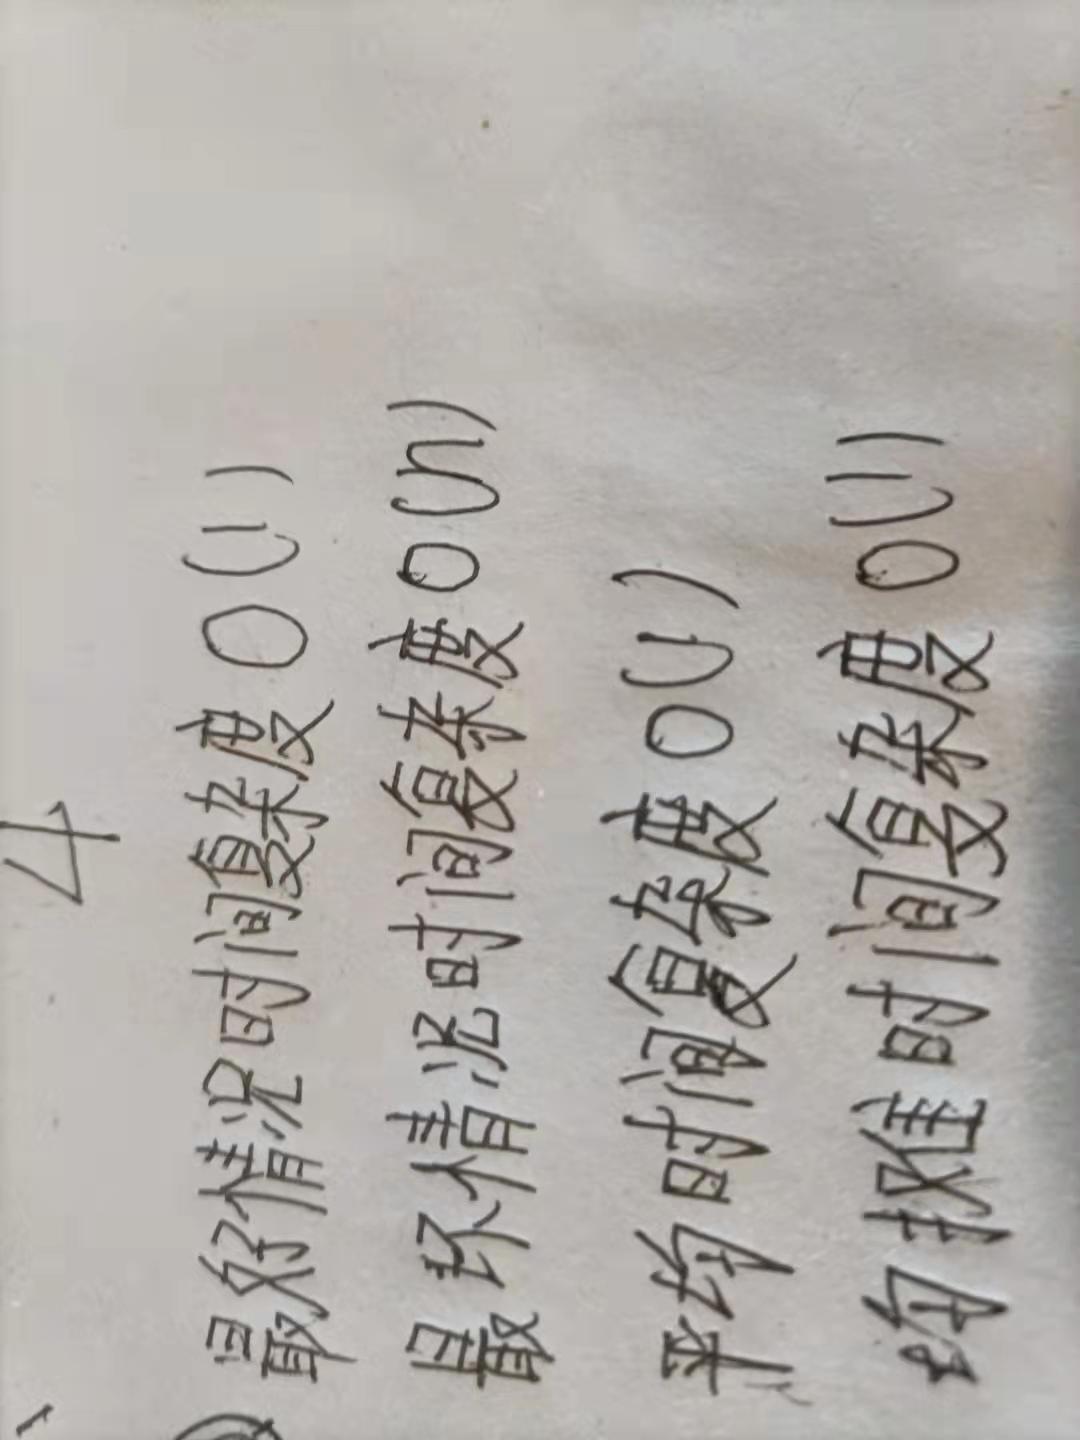 4
最好情况时间复杂度 O(1)
最坏情况时间复杂度 O(n)
平均时间复杂度 O(1)
均摊时间复杂度 O(1)